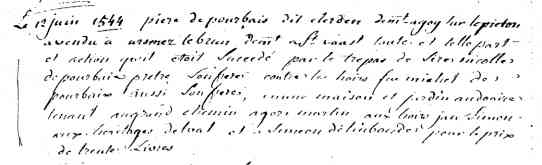 Le 12 juin 1544 piere depourbaix dit clerdon demt agoy sur lepieton
a vendu à urbmez lebrun demt a St vaast toute et telle part
et action qu'il etait succedé par le trepas de Sire nicolle
de pourbaix pretre Son frere contre les hoirs feu michel de
pourbaix aussi Son frere, en une maison et jardin audonaire
tenant augrand chemin agore martin aux hoirs jan Simon
aux heritages detrat et a Simeon pour le prix
de trente Livres